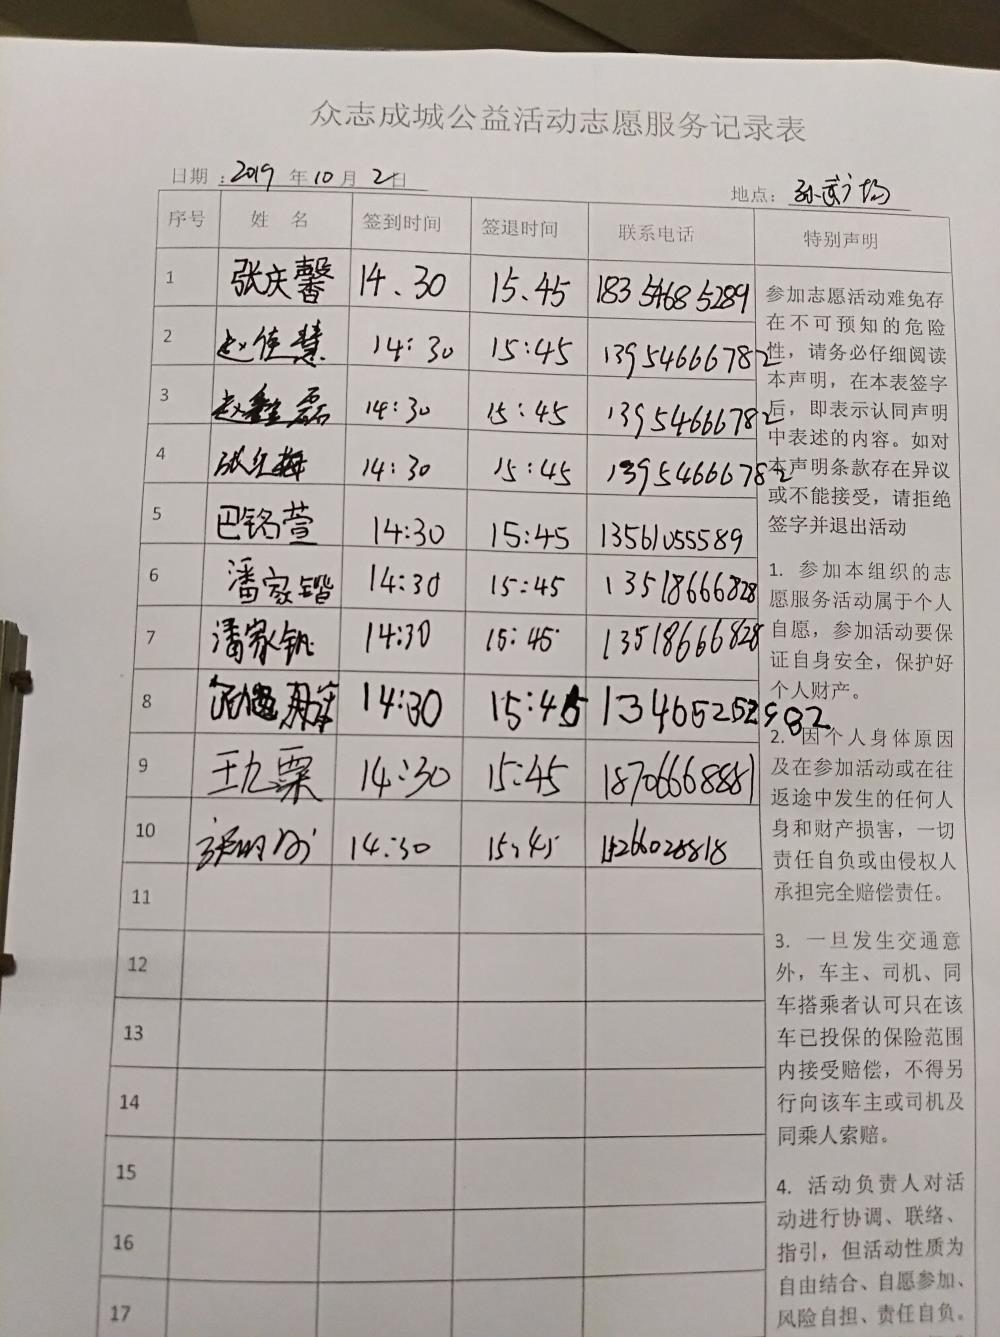 众志成城公益活动志愿服务记录表
日期：2019 年 10 月 2 日 地点：孙武广场
序号 姓 名 签到时间 签退时间 联系电话 特别声明
1 张庆馨 14、30 15、45 18354685289
2 赵佳慧 14:30 15:45 13954666782
3 赵鑫磊 14:30 15:45 13954666782
4 张红梅 14:30 15:45 13954666782
5 巴铭萱 14:30 15:45 13561055589
6 潘家锴 14:30 15:45 13518666828
7 潘家钒 14:30 15:45 13518666828
8 14:30 15:45
9 王九粟 14:30 15:45 18706668881
10 14:30 15:45 15266028818
11
12
13
14
15
16
17
参加志愿活动难免存
在不可预知的危险
性，请务必仔细阅读
本声明，在本表签字
后，即表示认同声明
中表述的内容。如对
本声明条款存在异议
或不能接受，请拒绝
签字并退出活动
1. 参加本组织的志
愿服务活动属于个人
自愿，参加活动要保
证自身安全，保护好
个人财产。
2. 因个人身体原因
及在参加活动或在往
返途中发生的任何人
身和财产损害，一切
责任自负或由侵权人
承担完全赔偿责任。
3. 一旦发生交通意
外，车主、司机、同
车搭乘者认可只在该
车已投保的保险范围
内接受赔偿，不得另
行向该车主或司机及
同乘人索赔。
4. 活动负责人对活
动进行协调、联络、
指引，但活动性质为
自由结合、自愿参加、
风险自担、责任自负。